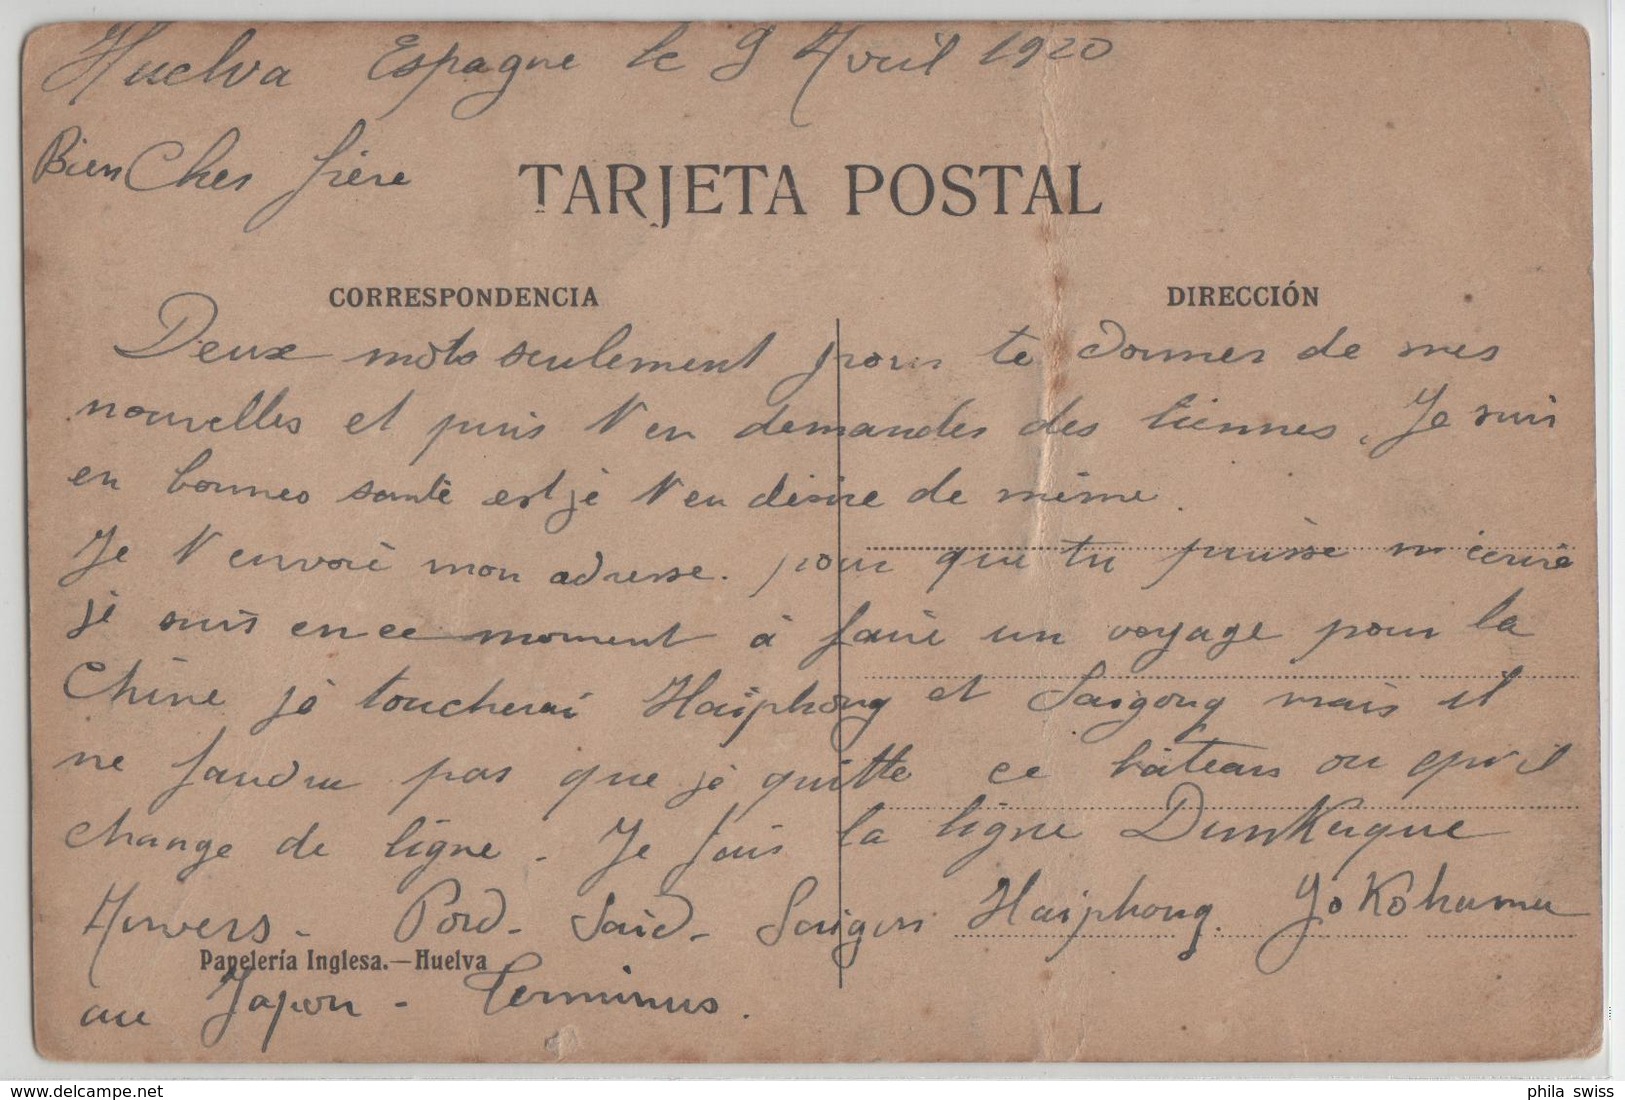 Huelva Espagne le 9 Avril 1920
Bien Cher frère
TARJETA POSTAL
CORRESPONDENCIA
DIRECCIÓN
Deux mots seulement pour te donner de mes
nouvelles et puis t'en demander des tiennes. Je suis
en bonnes santé est je t'en désire de même.
Je t'envoie mon adresse. pour que tu puisse m'écrire
je suis en ce moment à faire un voyage pour la
Chine je toucherai Haïphong et Saïgong mais il
ne faudra pas que je quitte ce bâteau ou qu'il
change de ligne. Je fais la ligne Dunkerque
Anvers - Pord - Saïd - Saïgon Haïphong. Yokohama
Papelería Inglesa.—Huelva
au Japon - Terminus.
phila swiss